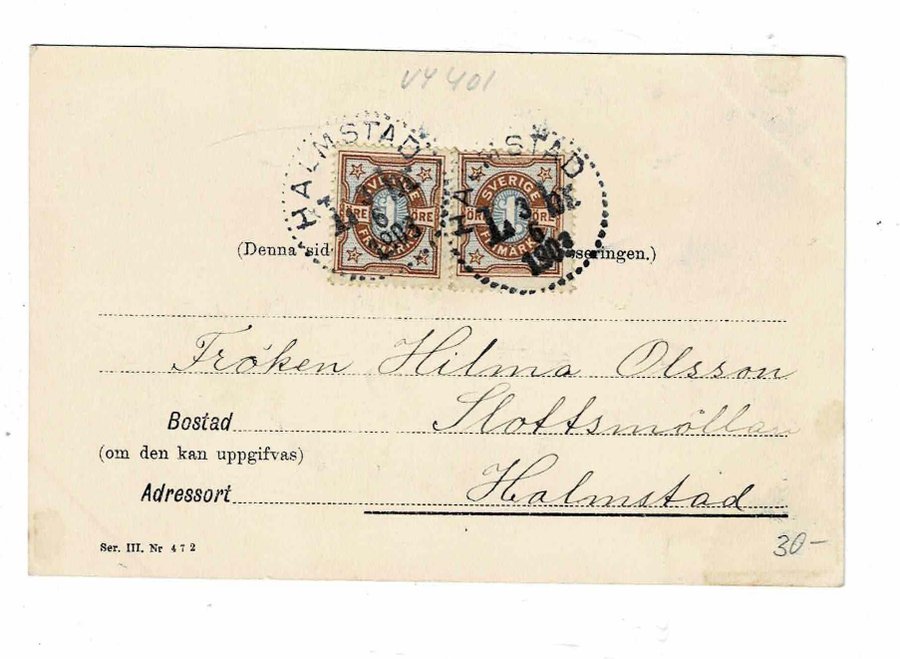 VY 401
HALMSTAD HALMSTAD
SVERIGE SVERIGE
ÖRE 1 ÖRE ÖRE 1 ÖRE
FRIMARKE FRIMARKE
6 6
1903 1903
(Denna sid sseringen.)
Fröken Hilma Olsson
Bostad Slottsmöllan
(om den kan uppgifvas)
Adressort Halmstad
Ser. III. Nr 472
30-